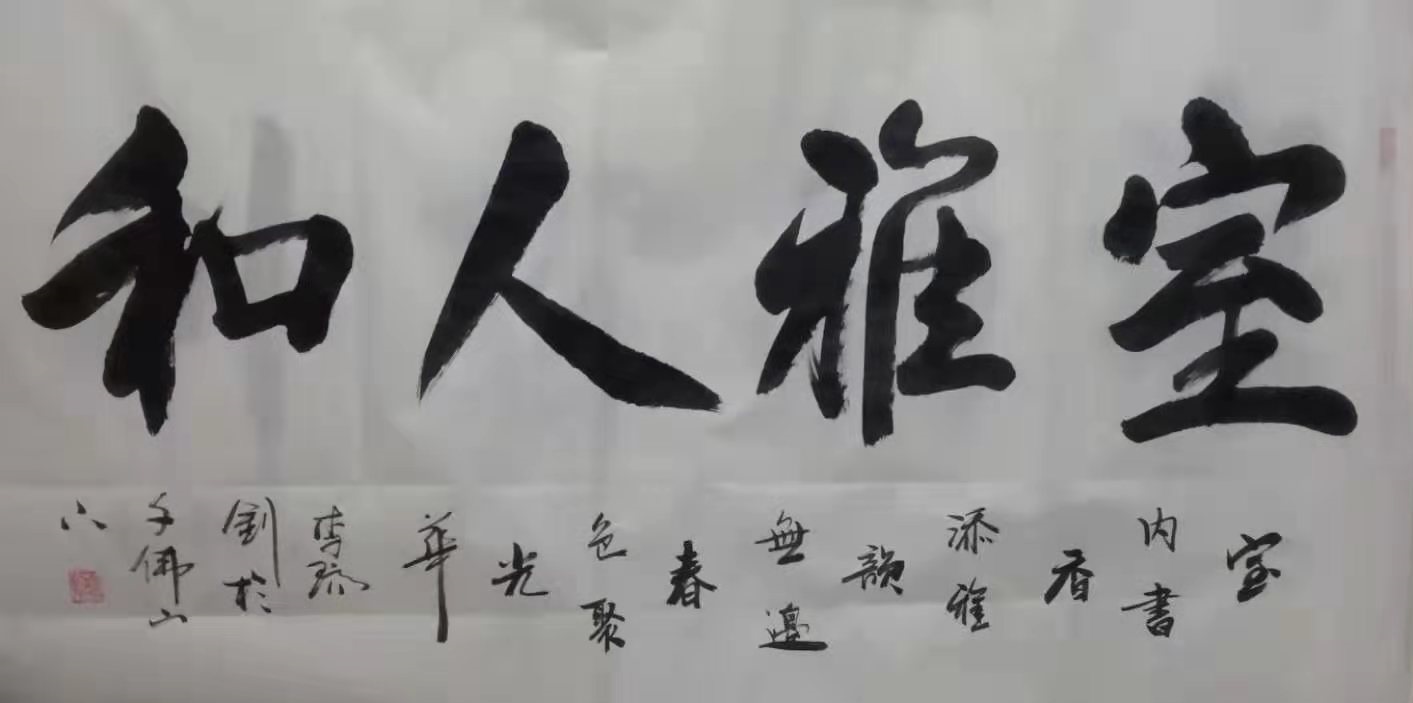 室雅人和
室内書香添雅韻
無邊春色聚光華
李瑞劍於千佛山下